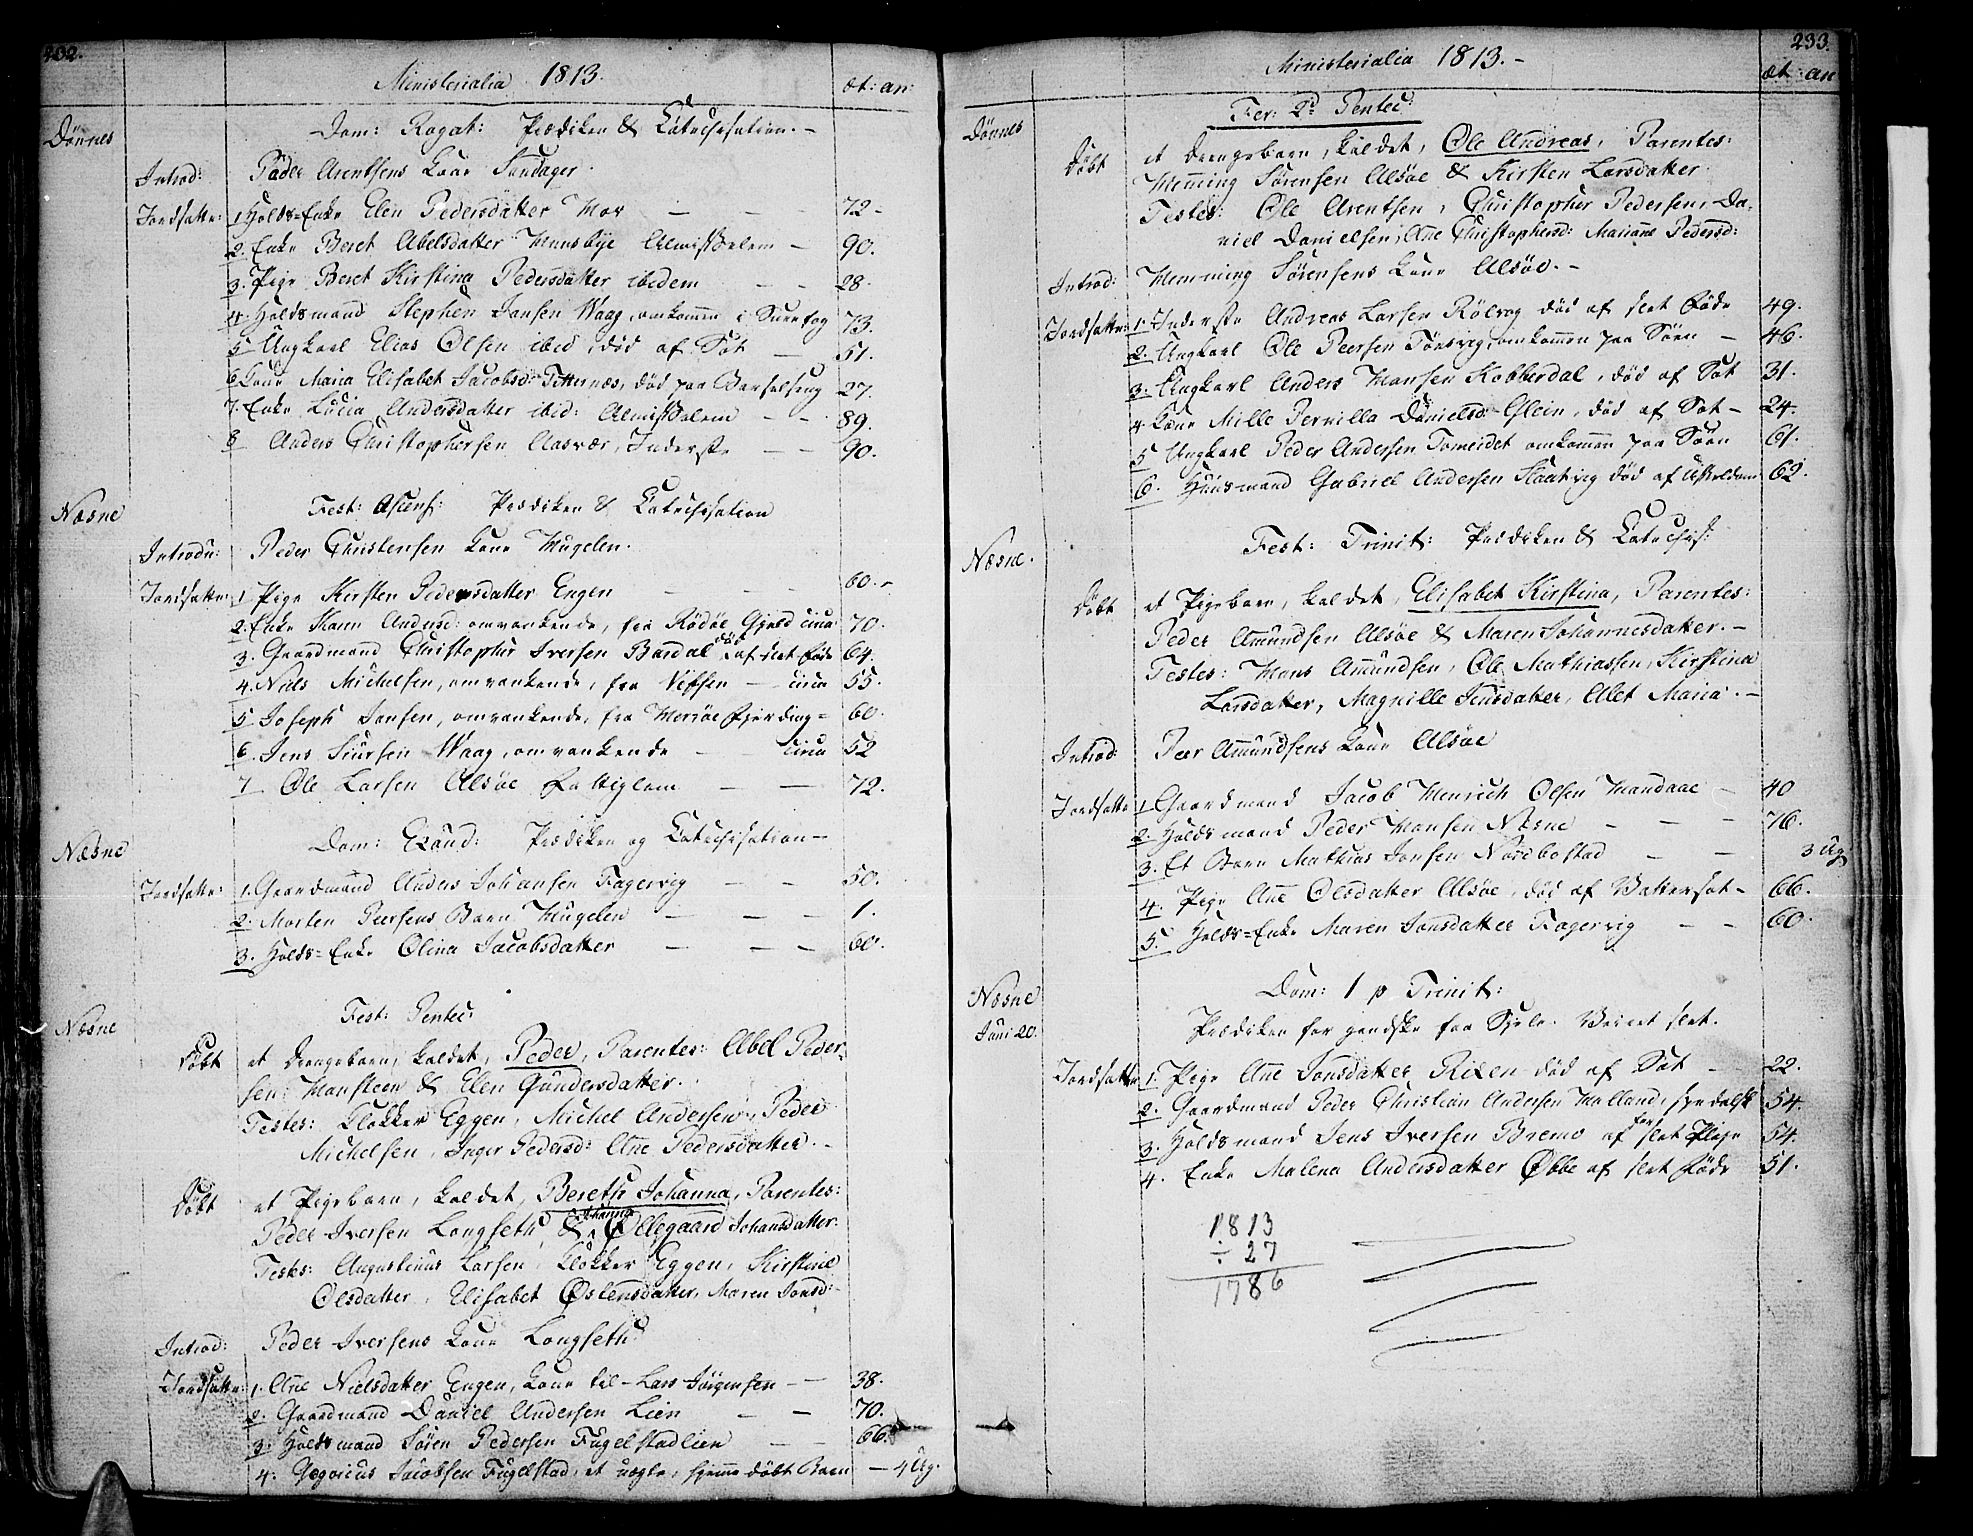 232.
Ministerialia 1813.
æt: an:
Dønnes
Dom: Rogat: Prædiken & Catechisation. –
Introd: Peder Arentsens Kone Sandager.
Jordfatte: 1. Holds=Enke Elen Pedersdatter Mor – – 72 –
2. Enke Beret Abelsdatter Almisselem – 90.
3. Pige Beret Kirstina Pedersdatter ibidem – – 28.
4. Holdsmand Stephen Jansen Waag, omkommen i 73.
5 Ungkarl Elias Olsen ibid, død af Sot – 51.
6 Kone Maria Elisabet Jacobsd: Titternæs, død paa Barselseng 27.
7. Enke Lucia Andersdatter ibid: Almisselem – – 89.
8 Anders Christophersen Aasvær, Inderste – – 90.
Næsne
Fest: Ascens: Prædiken & Catechisation
Introdu: Peder Christensen Kone Hugelen.
Jordfatte: 1 Pige Kirsten Pedersdatter Engen – – – 60. –
2. Enke Karen Andersd: omvankende, fra Rødøe Gjeld circa 70.
3. Gaardmand Christopher Iversen Bardal død af slet Føde 64.
4. Niels Michelsen, omvankende, fra Vefsen – circa 55.
5 Joseph Jansen, omvankende, fra Herrøe Fjerding= 60.
6. Jens Siursen Waag, omvankende – circa 52
7 Ole Larsen Alsøe Fattiglem – – 72.
Næsne
Dom: Exaud: Prædiken og Catechisation –
Jordfatte: 1. Gaardmand Anders Johansen Fagervig – – 50.
2. Morten Peersens Barn Hugelen – – – 1.
3. Holds=Enke Olina Jacobsdatter – – – 60.
Næsne
Fest: Pentec:
Døbt et Drengebarn, kaldet, Peder, Parentes: Abel Peder-
sen: Hansteen & Elen Gundersdatter.
Testes: Klokker Eggen, Michel Andersen, Peder
Michelsen, Inger Pedersd: Ane Pedersdatter. –
Døbt et Pigebarn, kaldet, Bereth Johanna, Parentes:
Peder Iversen Longseth & Johanna Ollegaard Johansdatter.
Testes: Augustinus Larsen, Klokker Eggen, Kirstine
Olsdatter, Elisabet Østensdatter, Maren Jonsd: –
Introd: Peder Iversens Kone Longseth.
Jordfatte: 1. Ane Nielsdatter Engen, Kone til – Lars Jørgensen – – 38.
2. Gaardmand Daniel Andersen Lien – – 70.
3. Holdsmand Søren Pedersen Fugelstadlien – – 66.
4. Jacobsen Fugelstad, et uægte, hjemme døbt Barn – 4 Ug.
233.
Ministerialia 1813. –
æt: an
Dønnes
Fer: 2d Pentec:
Døbt et Drengebarn, kaldet, Ole Andreas, Parentes:
Hemming Sørensen Alsøe & Kirsten Larsdatter.
Testes: Ole Arentsen, Christopher Pedersen, Da-
niel Danielsen, Ane Christophersd: Mariane Pedersd:
Introd: Hemming Sørensens Kone Alsøe. –
Jordfatte: 1. Inderste Andreas Larsen Rølvog død af slet Føde 49.
2. Ungkarl Ole Peersen Tønsvig, omkommen paa Søen – 46.
3. Ungkarl Anders Hansen Kobberdal, død af Sot 31.
4 Kone Mille Pernilla Danielsd: Glein, død af Sot – 24.
5 Ungkarl Peder Andersen Tomeidet omkommen paa Søen 61.
6. Huusmand Gabriel Andersen Slaatvig død af Alderdom 62.
Næsne.
Fest: Trinit: Prædiken & Catechis:
Døbt et Pigebarn, kaldet, Elisabet Kirstina, Parentes:
Peder Amundsen Alsøe & Maren Johannesdatter. –
Testes: Hans Amundsen, Ole Mathiassen, Kirstina
Larsdatter, Magnille Jensdatter, Alet Maria. –
Introd: Peer Amundsens Kone Alsøe
Jordfatte 1. Gaardmand Jacob Henrich Olsen Handaae – 40
2. Holdsmand Peder Hansen Næsne – – – 76.
3. Et Barn Mathias Jonsen Norebostad – – 3 Ug
4. Pige Ane Olsdatter Alsøe, død af Vattersot – 66.
5. Holds=Enke Maren Jonsdatter Fagervig – – 60.
Næsne
Juni 20.
Dom: 1 p Trinit:
Prædiken for ganske faa Sjele. Veiret slet.
Jordfatte 1. Pige Ane Jonsdatter Risen død af Sot – 22.
2. Gaardmand Peder Christian Andersen Halland, spedalsk 54.
3. Holdsmand Jens Iversen Bremo af for slet Pleje 54.
4. Enke Malena Andersdatter Øbbe af slet Føde 51.
1813
÷ 27
1786